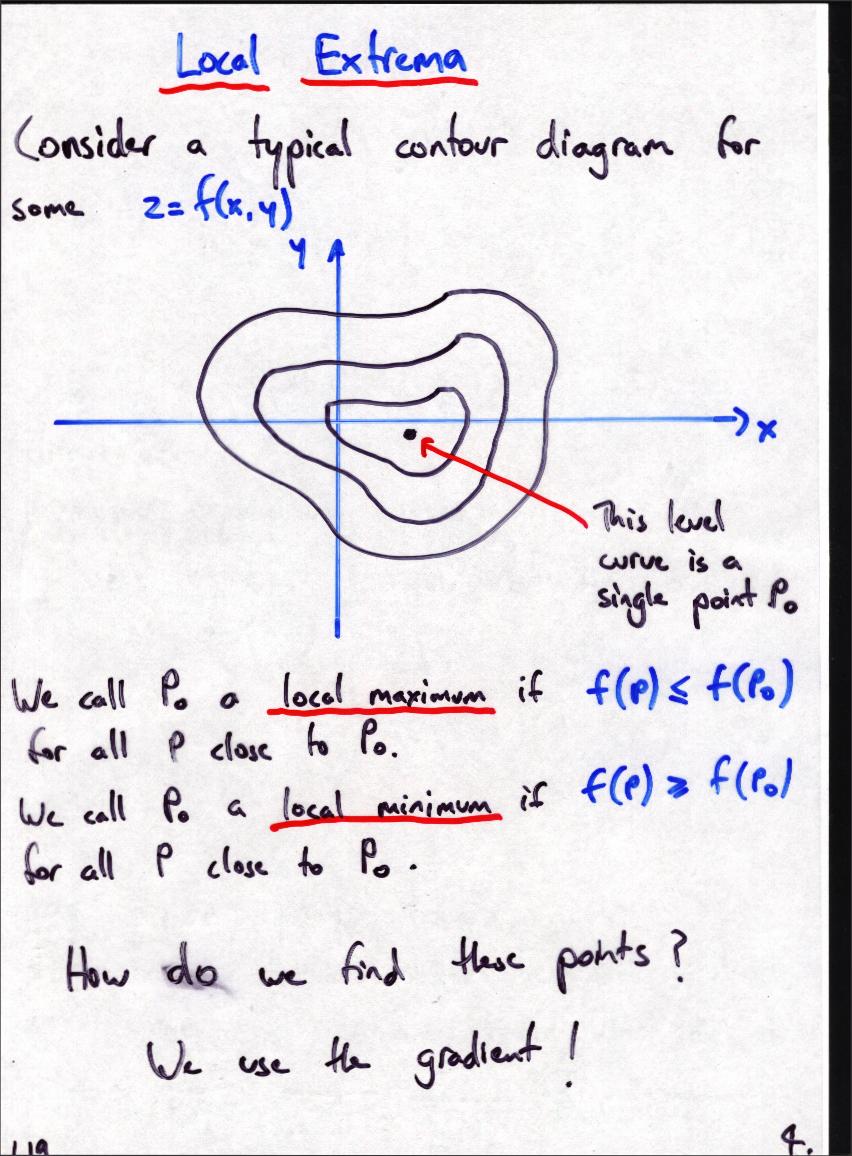 Local Extrema
Consider a typical contour diagram for
some z=f(x,y)
y
x
This level
curve is a
single point P₀
We call P₀ a local maximum if f(P) ≤ f(P₀)
for all P close to P₀.
We call P₀ a local minimum if f(P) ≥ f(P₀)
for all P close to P₀.
How do we find these points?
We use the gradient!
4.